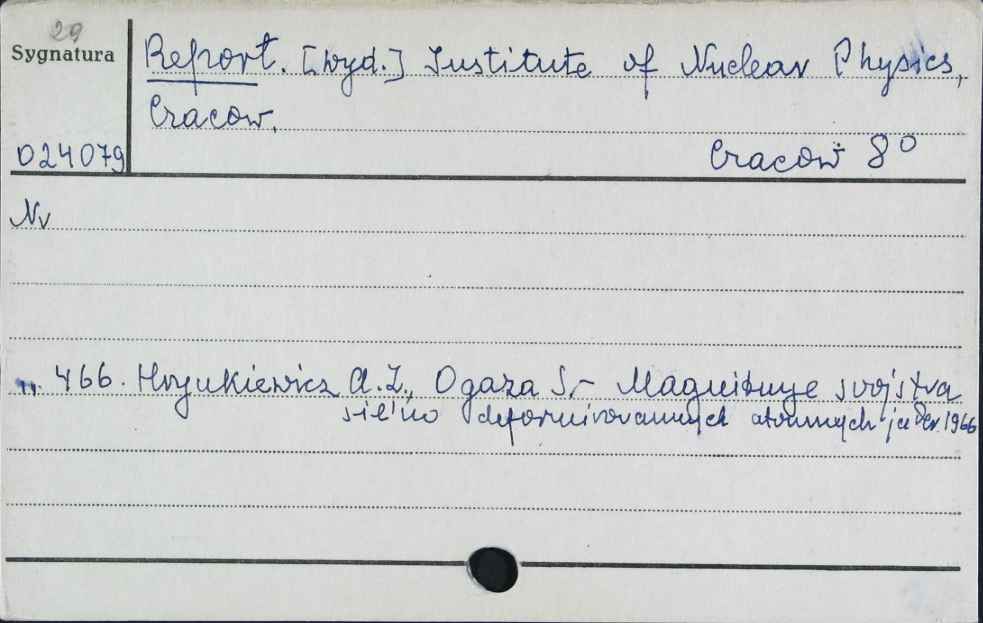 29
Sygnatura
D24079
Report. [Wyd.] Institute of Nuclear Physics,
Cracow.
Cracow 8°
Nr
„ 466. Hrynkiewicz A.Z., Ogaza S.- Magnitnye svojstva
sil'no deformirovannych atomnych jader. 1966